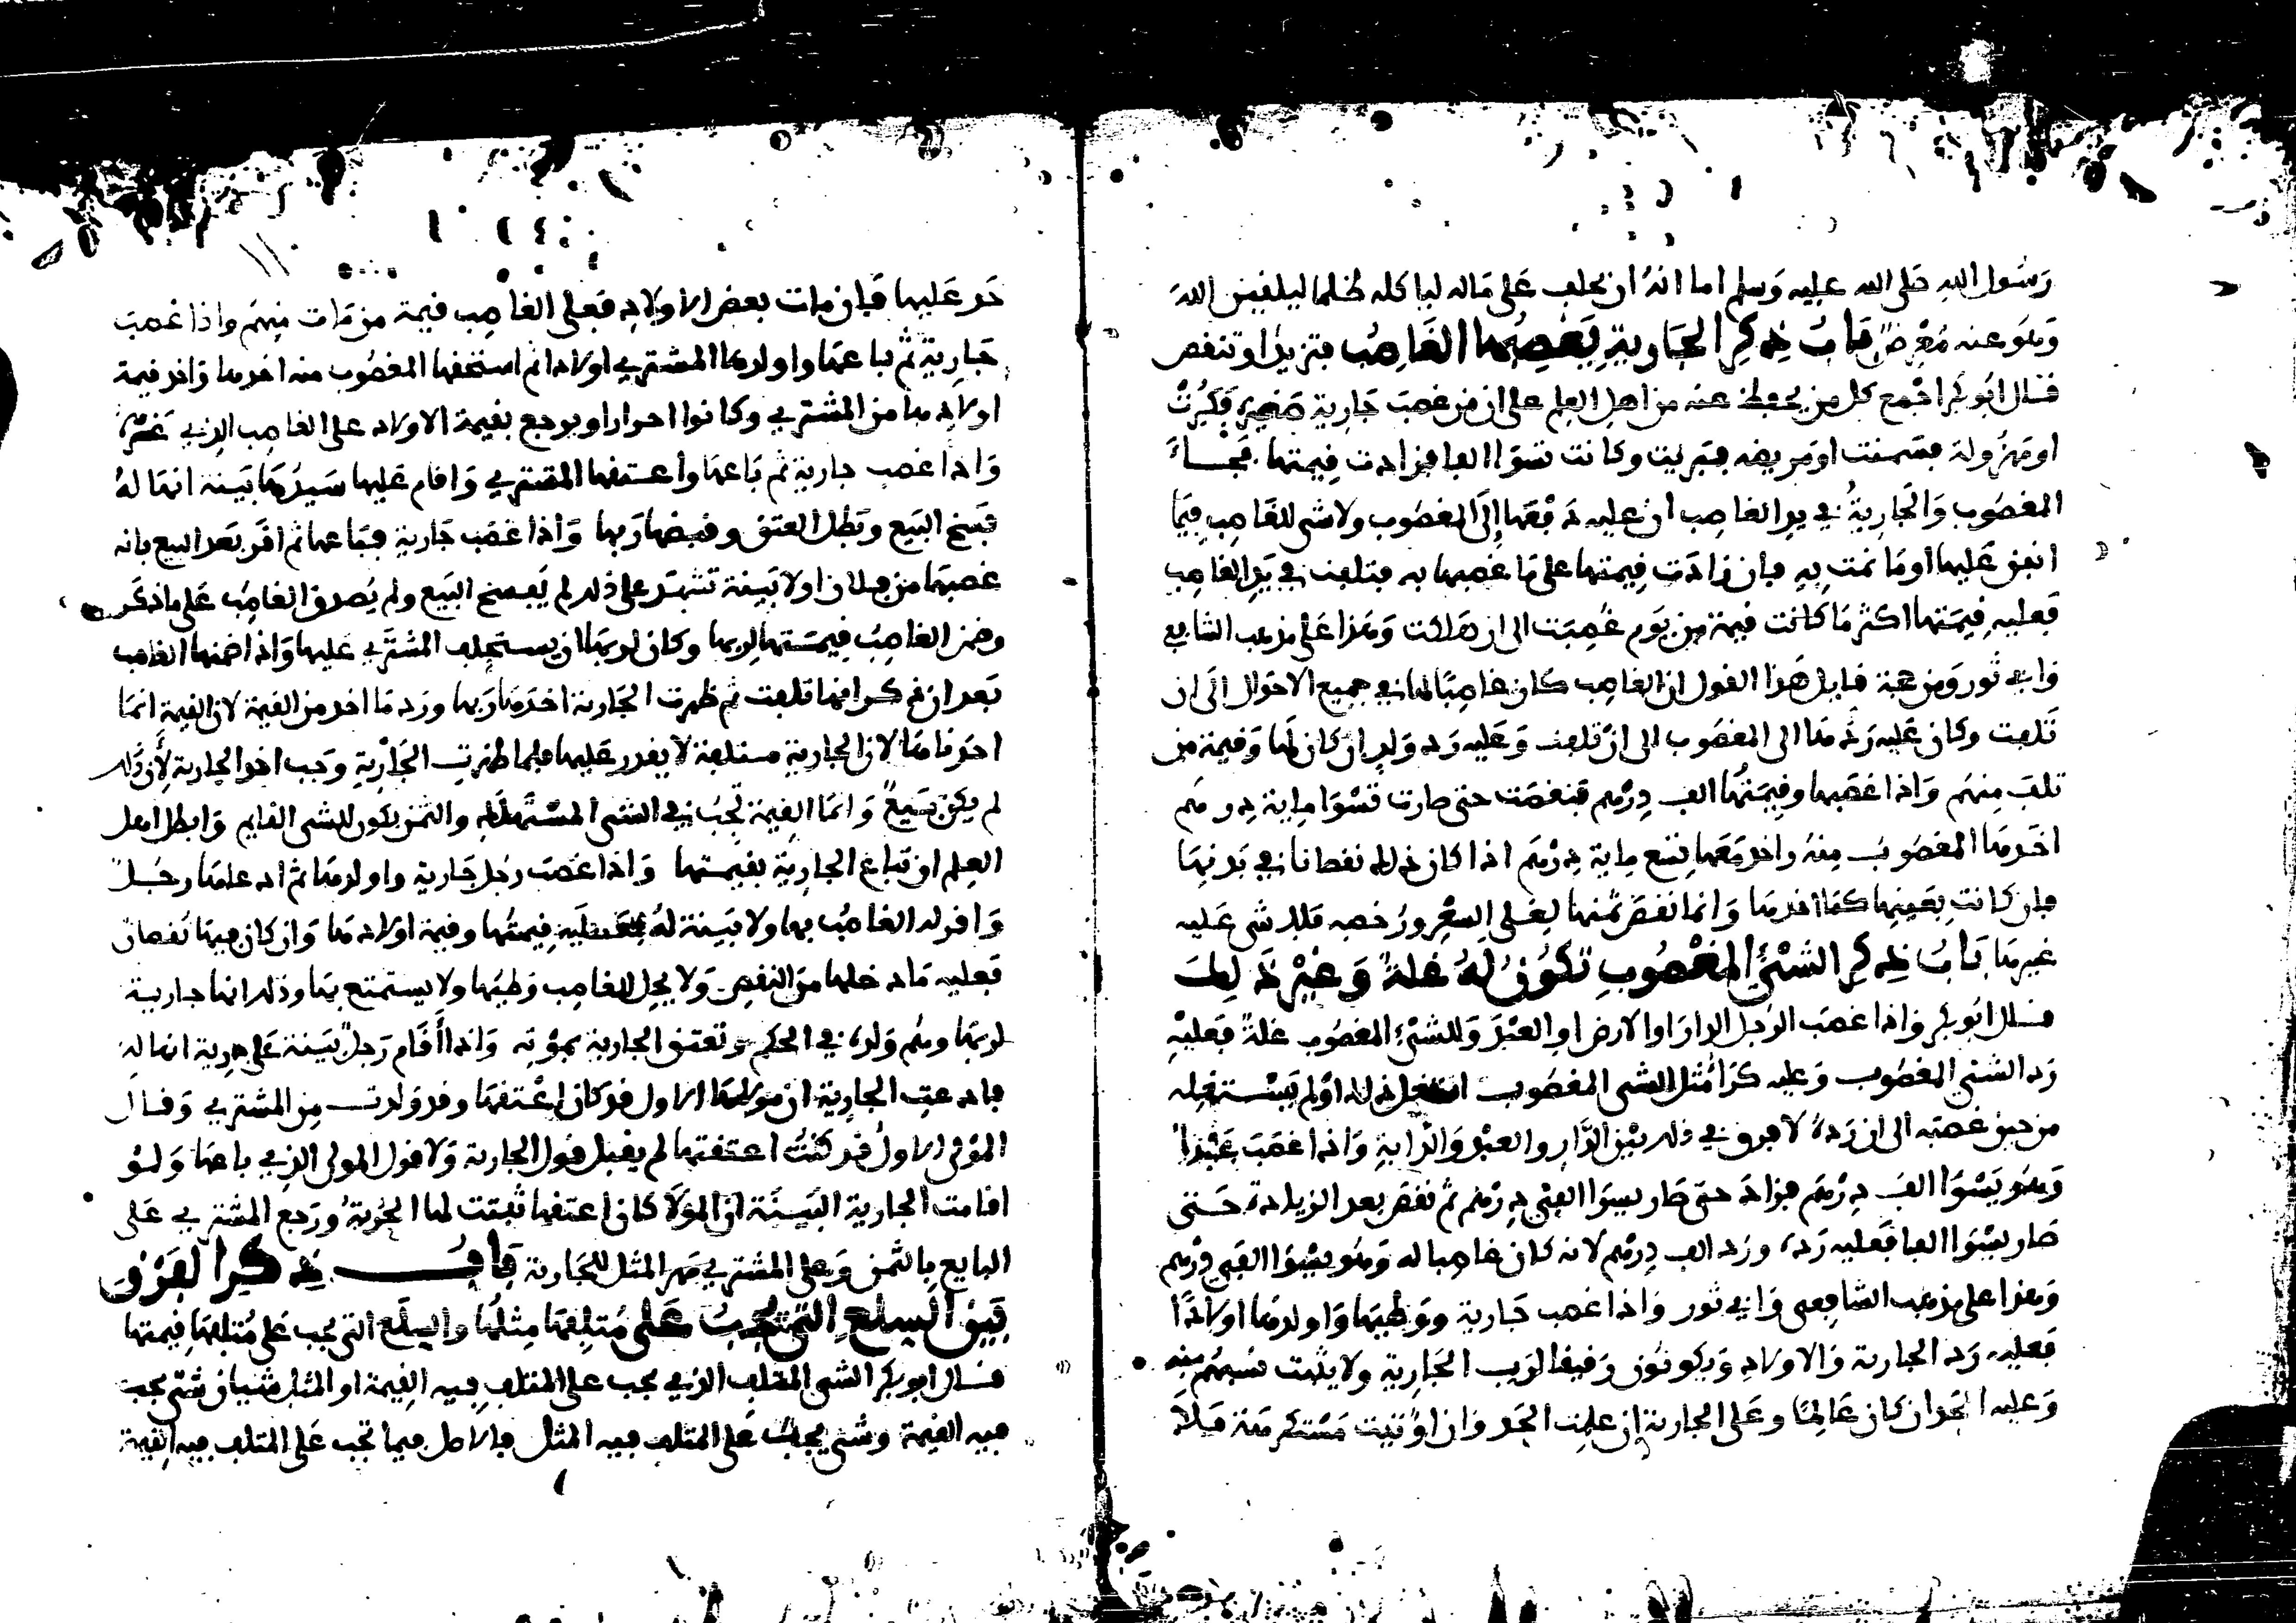 رسول الله صلى الله عليه وسلم اما انه ان يحلف على ماله لياكله ظلما ليلقين الله
وهو عنه معرض باب ذكر الجارية يغصبها الغاصب فتزيد او تنقص
قال ابو بكر اجمع كل من يحفظ عنه من اهل العلم على ان من غصب جارية صغيرة فكبرت
او مهزولة فسمنت او مريضه فبريت وكانت تسوا الفا فزادت قيمتها فجاء
المغصوب والجارية في يد الغاصب ان عليه دفعها الى المغصوب ولا شي للغاصب فيما
انفق عليها او ما نمت به فان زادت قيمتها على ما غصبها به فتلفت في يد الغاصب
فعليه قيمتها اكثر ما كانت قيمة من يوم غصبت الى ان هلكت وهذا على مذهب الشافعي
وابي ثور ومن حجة قايل هذا القول ان الغاصب كان غاصبا لها في جميع الاحوال الى ان
تلفت وكان عليه ردها الى المغصوب الى ان تلفت وعليه رد ولد ان كان لها وقيمة من
تلف منهم واذا غصبها وقيمتها الف درهم فنقصت حتى صارت تسوا ماية درهم
اخذها المغصوب منه واخذ معها تسع ماية درهم اذا كان ذلك نقصانا في بدنها
فان كانت بعينها كما اخذها وانما نقص ثمنها لغلى السعر ورخصه فلا شي عليه
غيرها باب ذكر الشئ المغصوب تكون له غلة وغير ذلك
قال ابو بكر واذا غصب الرجل الدار او الارض او العبد وللشئ المغصوب غلة فعليه
رد الشئ المغصوب وعليه كرا مثل الشي المغصوب استغل ذلك او لم يستغله
من حين غصبه الى ان رده لا فرق في ذلك بين الدار والعبد والدابة واذا غصب عبدا
وهو يسوا الف درهم فزاد حتى صار يسوا الفي درهم ثم نقص بعد الزيادة حتى
صار يسوا الفا فعليه رده ورد الف درهم لانه كان غاصبا له وهو يسوا الفي درهم
وهذا على مذهب الشافعي وابي ثور واذا غصب جارية ووطيها واولدها اولادا
فعليه رد الجارية والاولاد ويكونون رقيقا لرب الجارية ولا يثبت نسبهم منه
وعليه الحد ان كان عالما وعلى الجارية ان علمت الحد وان اوتيت مستكرهة فلا
حد عليها فان مات بعض الاولاد فعلى الغاصب قيمة من مات منهم واذا غصب
جارية ثم باعها واولدها المشتري اولادا ثم استحقها المغصوب منه اخذها واخذ قيمة
اولادها من المشتري وكانوا احرارا ويرجع بقيمة الاولاد على الغاصب الذي غره
واذا غصب جارية ثم باعها واعتقها المشتري واقام عليها سيدها بينة انها له
فسخ البيع وبطل العتق وقبضها ربها واذا غصب جارية فباعها ثم اقر بعد البيع بانه
غصبها من فلان ولا بينة تشهد على ذلك لم يفسخ البيع ولم يصدق الغاصب على ما ذكر
وضمن الغاصب قيمتها لربها وكان لربها ان يستحلف المشتري عليها واذا ضمنها الغاصب
بعد ان ذكر انها تلفت ثم ظهرت الجارية اخذها ربها ورد ما اخذ من القيمة لان القيمة انما
اخذناها لان الجارية مستلفة لا يقدر عليها فلما ظهرت الجارية وجب اخذ الجارية لان ذلك
لم يكن بيع وانما القيمة تجب في الشي المستهلك والثمن يكون للشي القايم وابطل اهل
العلم ان تباع الجارية بقيمتها واذا غصب رجل جارية واولدها ثم ادعاها رجل
واقر له الغاصب بها ولا بينة له فعليه قيمتها وقيمة اولادها وان كان فيها نقصان
فعليه ما دخلها من النقص ولا يحل للغاصب وطيها ولا يستمتع بها وذلك انها جارية
لربها وهم ولده في الحكم وتعتق الجارية بموته واذا اقام رجل بينة على جارية انها له
فادعت الجارية ان مولاها الاول قد كان اعتقها وقد ولدت من المشتري وقال
المولى الاول قد كنت اعتقتها لم يقبل قول الجارية ولا قول المولى الذي باعها ولو
اقامت الجارية البينة ان المولا كان اعتقها ثبتت لها الحرية ورجع المشتري على
البايع بالثمن وعلى المشتري مهر المثل للجارية باب ذكر الفرق
بين السلع التي تجب على متلفها مثلها والسلع التي يجب على متلفها قيمتها
قال ابو بكر الشي المتلف الذي يجب على المتلف فيه القيمة او المثل شيان شي يجب
فيه القيمة وشي يجب على المتلف فيه المثل فالاصل فيما تجب على المتلف فيه القيمة